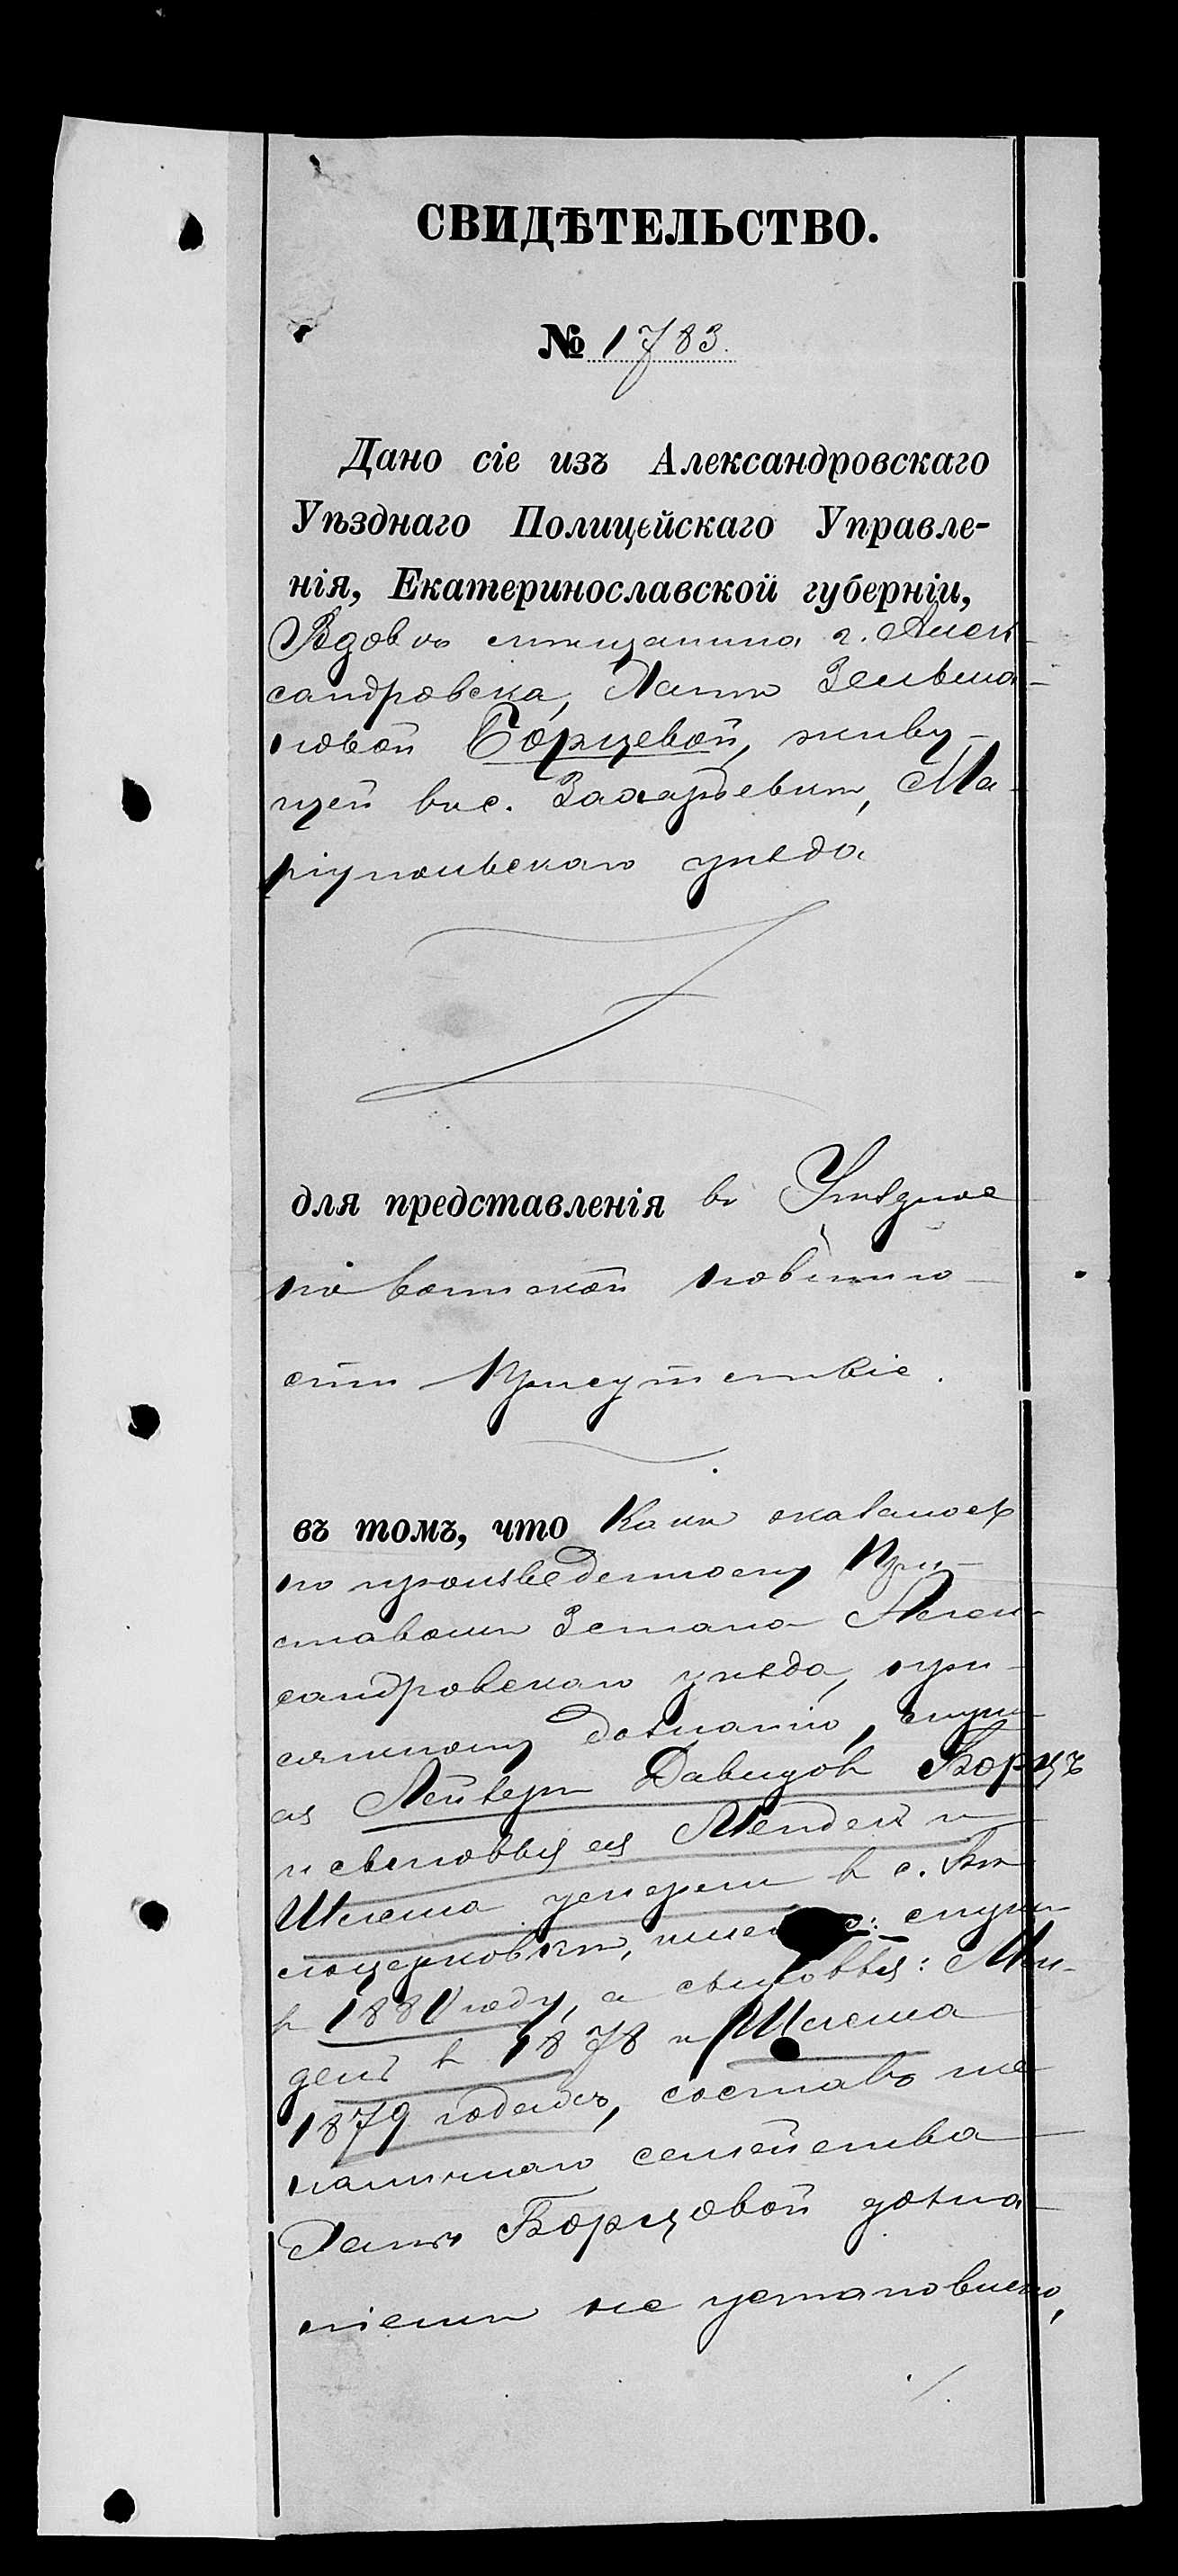 СВИДѢТЕЛЬСТВО.
№ 1783.
Дано сіе изъ Александровскаго
Уѣзднаго Полицейскаго Управле-
нія, Екатеринославской губерніи,
Вдовѣ мѣщанина г. Алек-
сандровска, Зельма-
новой Борцевой, живу-
щей въ с. Захарьевкѣ, Ма-
ріупольскаго уѣзда
для представленія въ Уѣздное
по воинской повинно-
сти Присутствіе.
въ томъ, что Какъ оказалось
по произведенному При-
ставомъ 3 стана Алек-
сандровскаго уѣзда, при-
сяжному дознанію, мужъ
ея Лейзеръ Давидовъ Борцъ
и сыновья ея Мендель и
Шлема умерли въ с.
мужъ
въ 1881 году, а сыновья: Мен-
дель въ 1878 и Шлема
1879 годахъ, составъ же
наличнаго семейства
Борцовой дозна-
ніемъ не установлено,